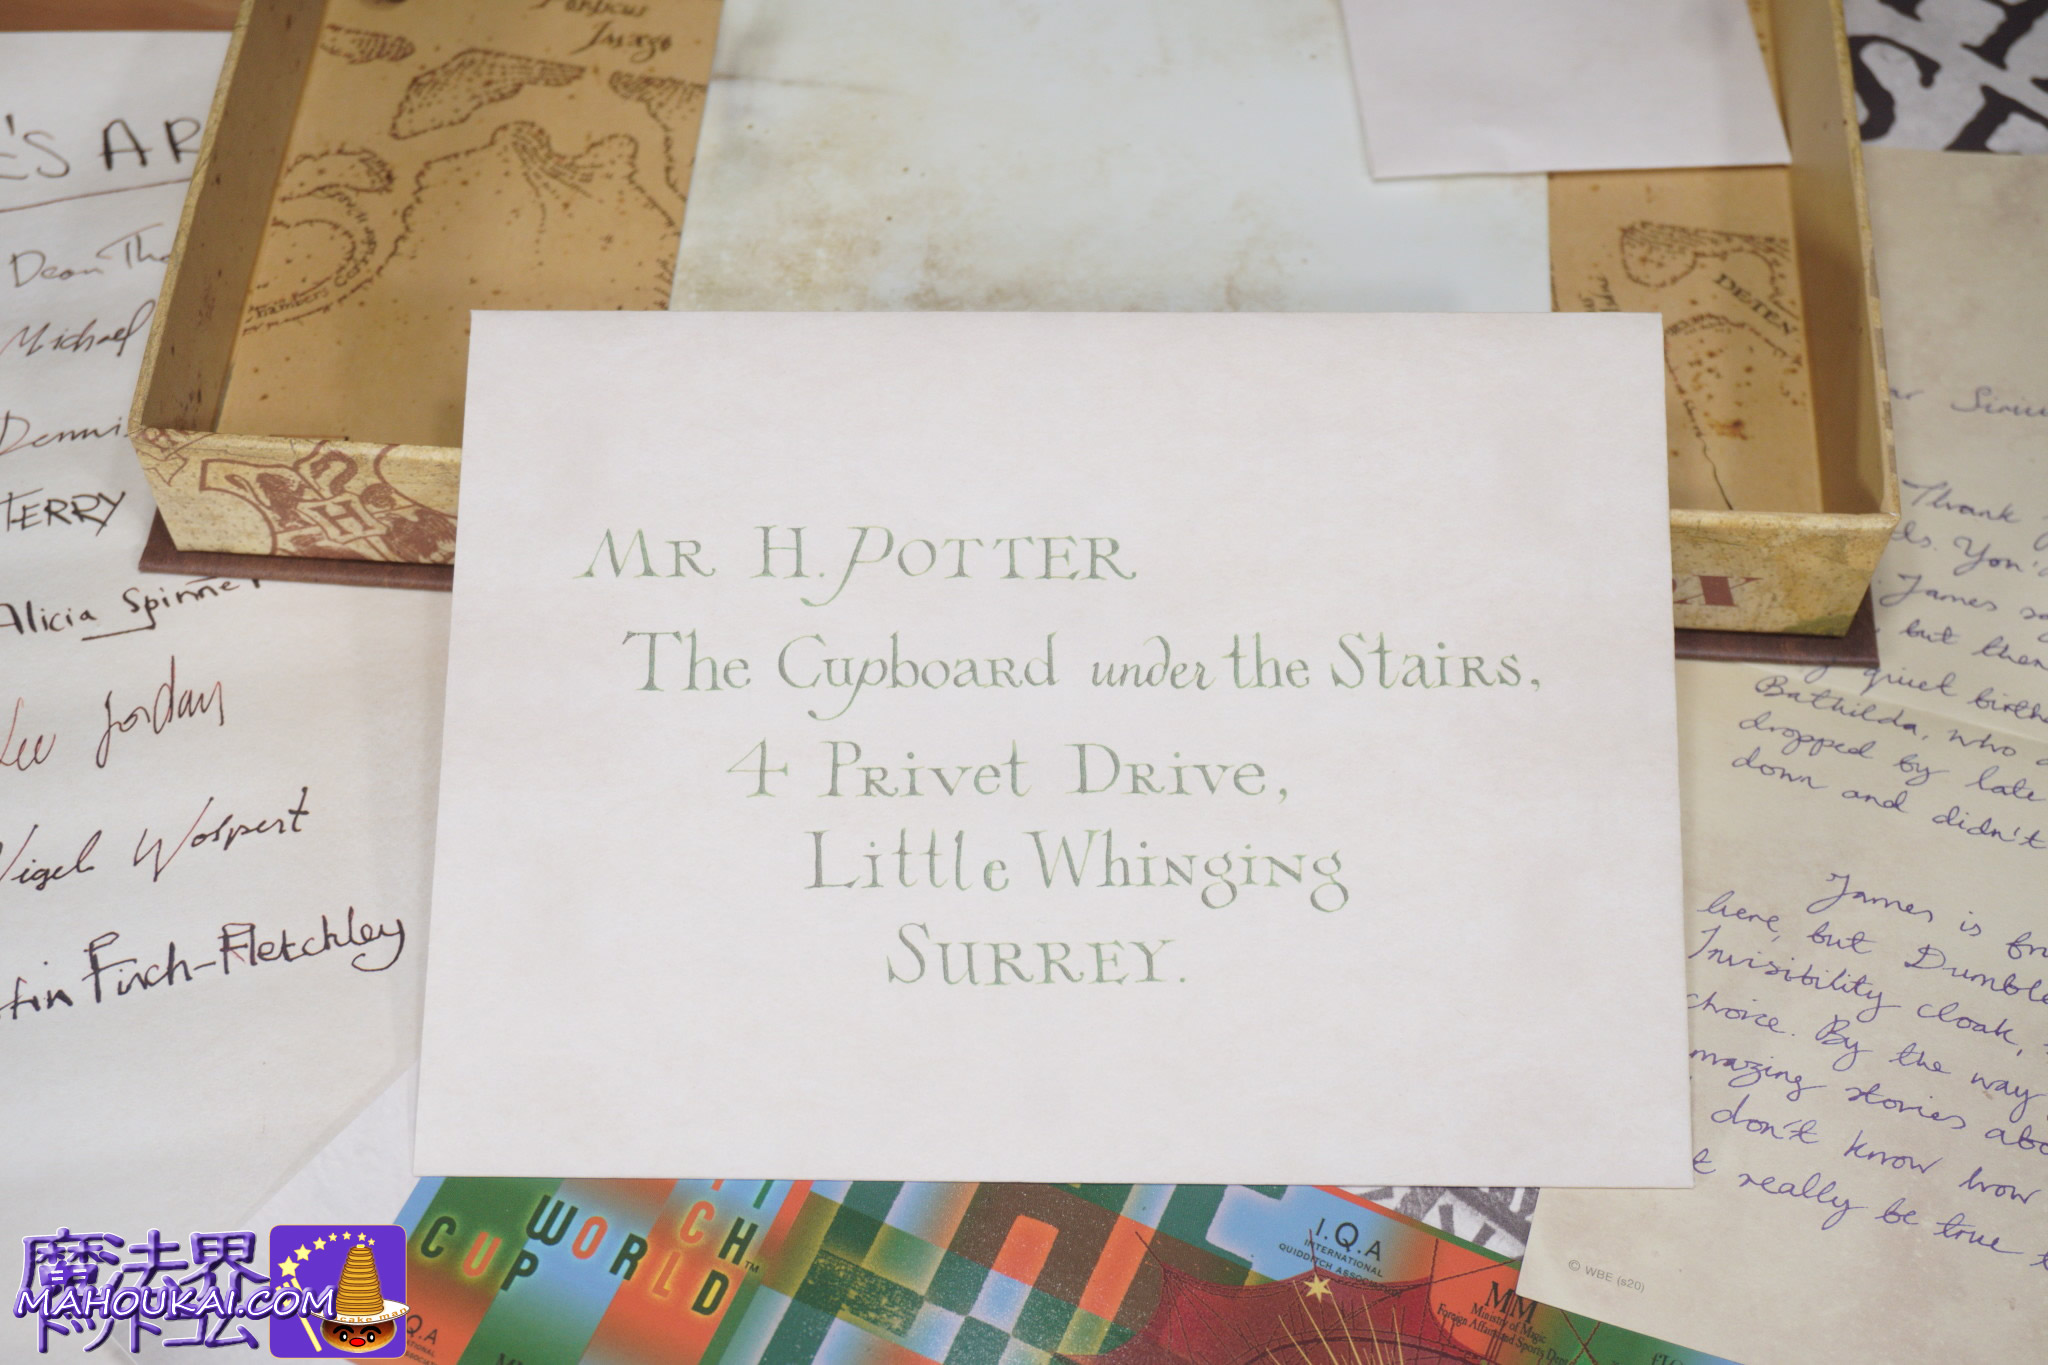 Porticus
Imago
'S AR
Dean Tho
Michael
Dennis
TERRY
Alicia Spinnet
Lee Jordan
Nigel Wolpert
Finch-Fletchley
H
DETEN
MR H. POTTER
The Cupboard under the Stairs,
4 Privet Drive,
Little Whinging
SURREY.
Thank
You'
James
but then
quiet birth
Bathilda, who
dropped by late
down and didn't
James is
here, but Dumble
Invisibility cloak,
choice. By the way
mazing stories abo
don't know how
really be true
© WBE (s20)
WORLD
CUP
I.Q.A
INTERNATIONAL
QUIDDITCH ASSOCIATION
MM
Ministry of Magic
Foreign Affairs and Sports Dep
魔法界
MAHOUKAI.COM
ドットコム
cake man